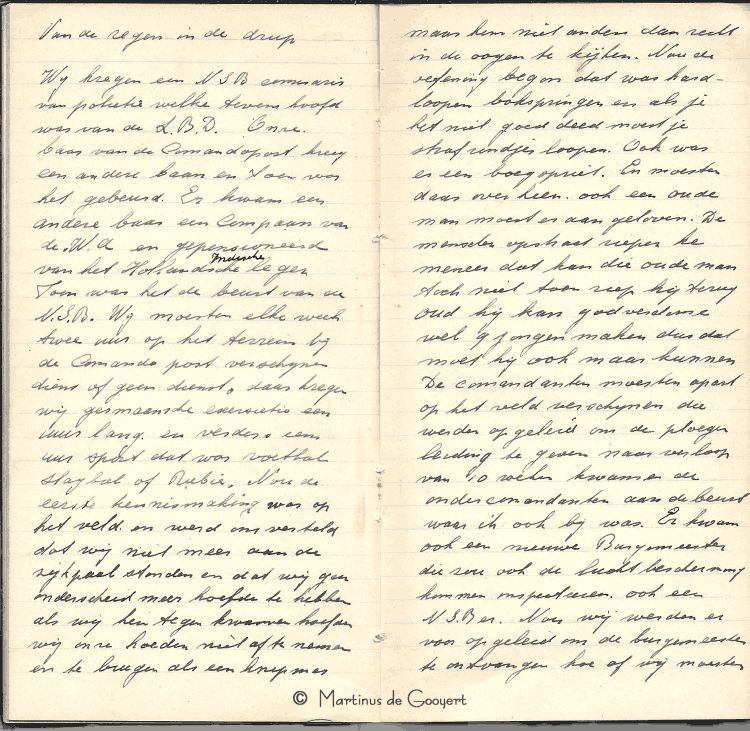 Van de regen in de drup
Wy kregen een N.S.B comisaris
van polietie welke tevens hoofd
was van de L.B.D. Onze
baas van de Comandopost kreeg
een andere baan en Toen was
het gebeurd. Er kwam een
andere baas een Compaan van
de W.A en gepensioneerd
van het Hollandsche Indische leger
Toen was het de beurt van de
N.S.B. Wy moesten elke week
twee uur op het terrein by
de Comando post verschynen
dienst of geen dienst, daar kregen
wij germaansche exersietie een
uur lang. en verders een
uur sport dat was voetbal
slagbal of Rubie. Nou de
eerste kennismaking was op
het veld en werd ons verteld
dat wij niet meer aan de
zijkpaal stonden en dat wij geen
onderscheid meer hoefde te hebben
als wij hen tegen kwamen hoefden
wij onze hoeden niet af te nemen
en te buegen als een knipmes
maar hem niet anders dan recht
in de oogen te kijken. Nou de
oefening begon dat was hard-
loopen bokspringen en als je
het niet goed deed moest je
strafrondjes loopen. Ook was
er een boegspriet. En moesten
daar over heen. ook een oude
man moest er aan gelooven. De
menschen op straat riepen he
meneer dat kan die oude man
toch niet toen riep hij terug
oud hij kan godverdome
wel jongen maken dus dat
moet hij ook maar kunnen
De comandanten moesten apart
op het veld verschynen die
werden opgeleid om de ploegen
leiding te geven naar verloop
van 10 weken kwamen de
ondercomandanten aan de beurt
waar ik ook by was. Er kwam
ook een nieuwe Burgemeester
die zou ook de luchtbescherming
komen inspecteren. ook een
N.S.Ber. Nou wij werden er
voor opgeleid om de burgemeester
te ontvangen hoe of wij moesten
© Martinus de Gooyert